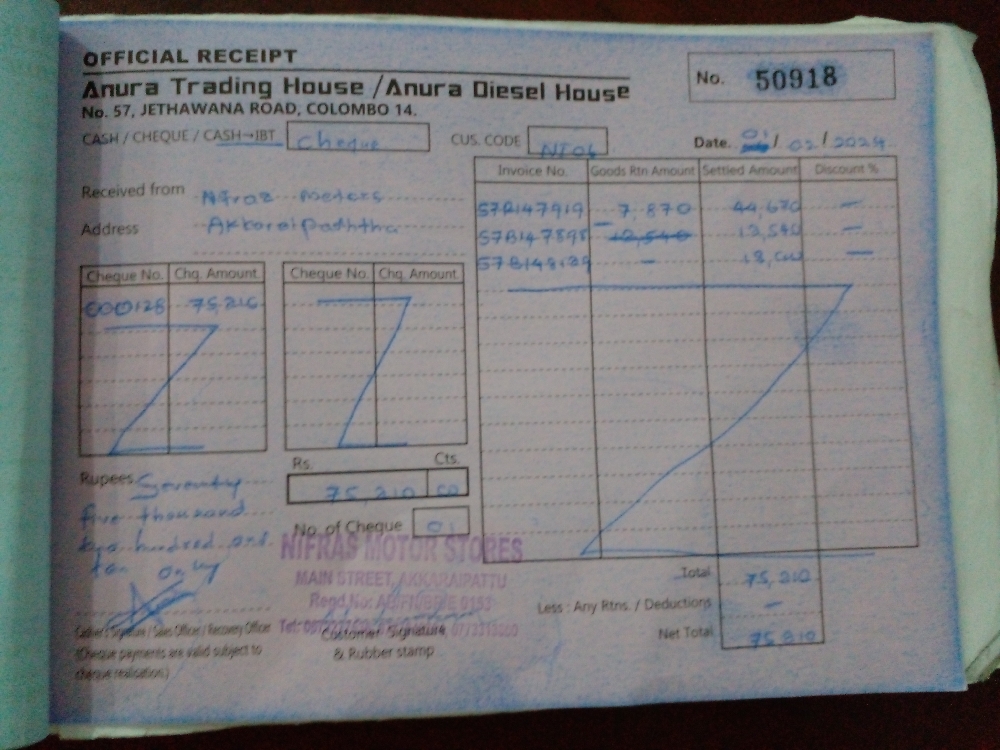 OFFICIAL RECEIPT
Anura Trading House / Anura Diesel House
No. 57, JETHAWANA ROAD, COLOMBO 14.
No. 50918
CASH / CHEQUE / CASH→JBT Cheque
CUS. CODE NI06
Date. 01 / 02 / 2024
Received from
Address
Invoice No. Goods Rtn Amount Settled Amount Discount %
57B147919 7,870 44,670 —
57B147898 12,540 —
57B148129 — —
Cheque No. Chq. Amount
000128 75,210
Cheque No. Chq. Amount
Rupees Seventy
five thousand
two hundred and
ten only
Rs. Cts.
75,210 00
No. of Cheque 01
NIFRAS MOTOR STORES
MAIN STREET, AKKARAIPATTU
Total 75,210
Less : Any Rtns. / Deductions —
Net Total 75,210
Cashier's Signature / Sales Officer / Recovery Officer
(Cheque payments are valid subject to
cheque realisation.)
Customer Signature
& Rubber stamp